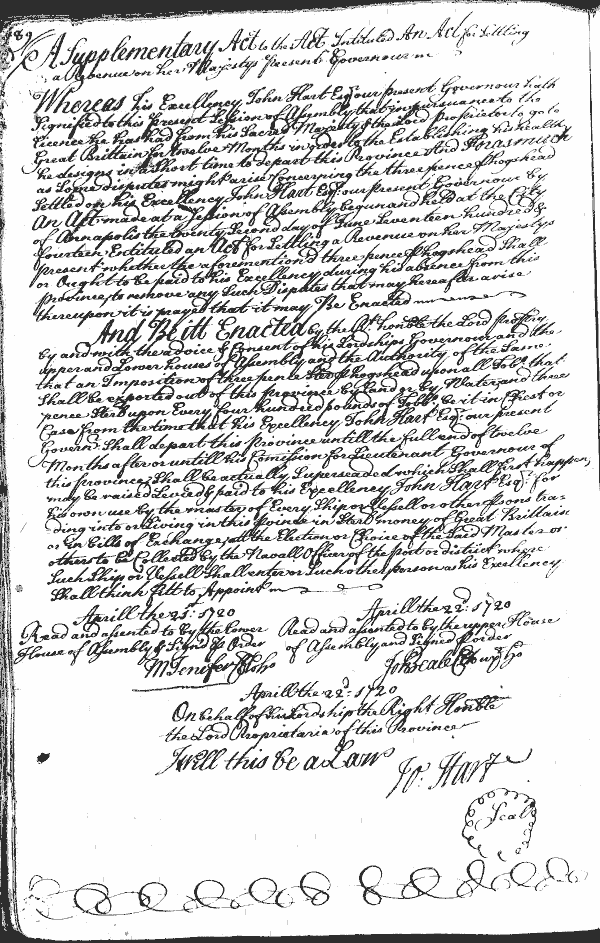 189
A Supplementary Act to the Act Intituled An Act for Settling
a Revenue on her Majestys Present Governour
Whereas his Excellency John Hart Esqr our present Governour hath
Signified to this Present Session of Assembly that in pursuance to the
Licence he has had from his Sacred Majesty & the Lord Proprietor to go to
Great Brittain for twelve Months in order to the Establishing his health
he designs in a Short time to depart this Province And Forasmuch
as Some disputes might arise Concerning the three pence p hogshead
Settled on his Excellency John Hart Esqr our present Governour by
An Act made at a Session of Assembly begun and held at the City
of Annapolis the twenty Second day of June Seventeen hundred &
fourteen Entituled an Act for Settling a Revenue on her Majestys
present whether the aforementiond three pence p hogshead Shall
or Ought to be paid to his Excellency during his absence from this
Province, to remove any Such Disputes that may hereafter arise
thereupon it is prayed that it may Be Enacted
And Be itt Enacted by the Rt honble the Lord Propry
by and with the advice & Consent of his Lordships Governour and the
upper and Lower houses of Assembly and the Authority of the Same
that an Imposition of three pence p hogshead upon all Tobo that
Shall be exported out of this Province by Land or by Water, and three
pence Ster upon Every four hundred pounds of Tobo be it in Chest or
Case from the time that his Excellency John Hart Esqr our present
Governr Shall depart this Province untill the full end of twelve
Months after or untill his Comission for Lieutenant Governour of
this province Shall be actually Superseaded which Shall first happen
may be raised Leved & paid to his Excellency John Hart Esqr for
his own use by the master of Every Ship or Vessell or other psons tra=
ding into or Living in this Province in Sterl money of Great Brittain
or in bills of Exchange, att the Election or Choice of the Said Master or
others to be Collected by the Navall Officer of the port or district where
Such Ship or Vessell Shall enter or Such other person as his Excellency
Shall think fitt to Appoint
Aprill the 21st 1720
Read and assented to by the Lower
House of Assembly & Signd p Order
M Jenifer Cl Lo ho
Aprill the 22d 1720
Read and assented to by the upper House
of Assembly and Signed p order
Jo Beale Cl up ho
Aprill the 22d 1720
On behalf of his Lordship the Right Honble
the Lord Proprietaria of this Province
I will this be a Law
Jo: Hart
Seal